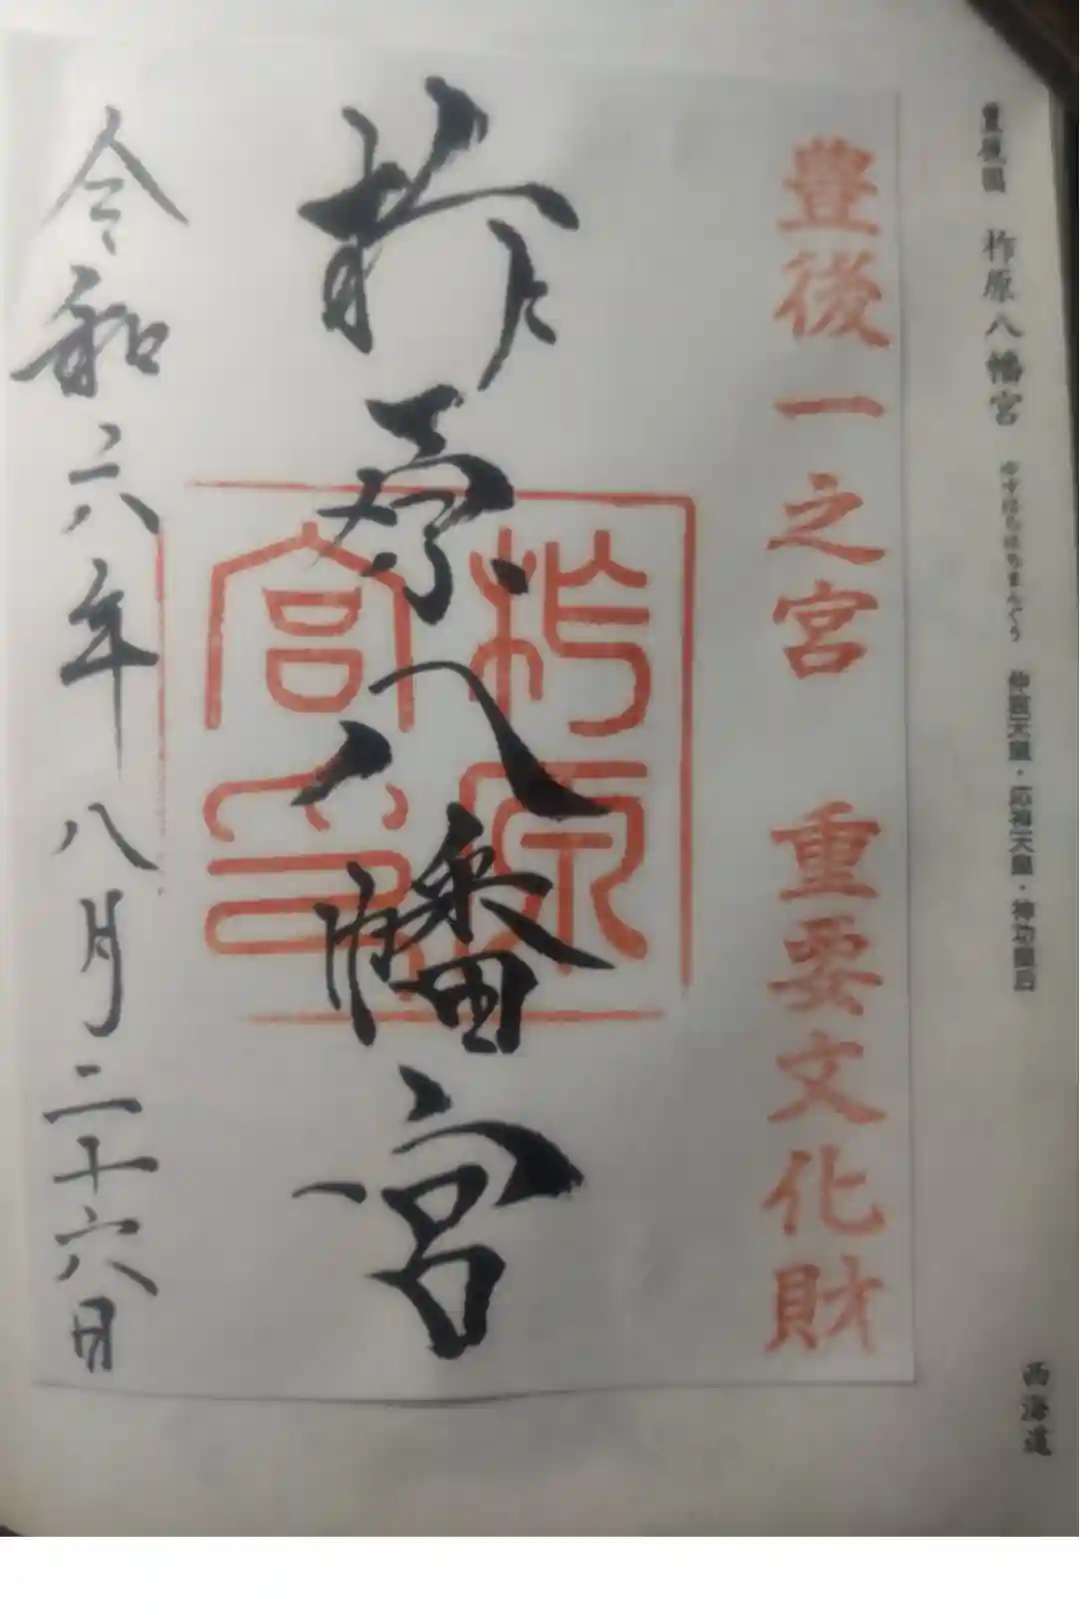 豊後國 柞原八幡宮 ゆすはらはちまんぐう 仲哀天皇・応神天皇・神功皇后 西海道
豊後一之宮 重要文化財
柞原八幡宮
柞原
宮印
令和六年八月二十六日